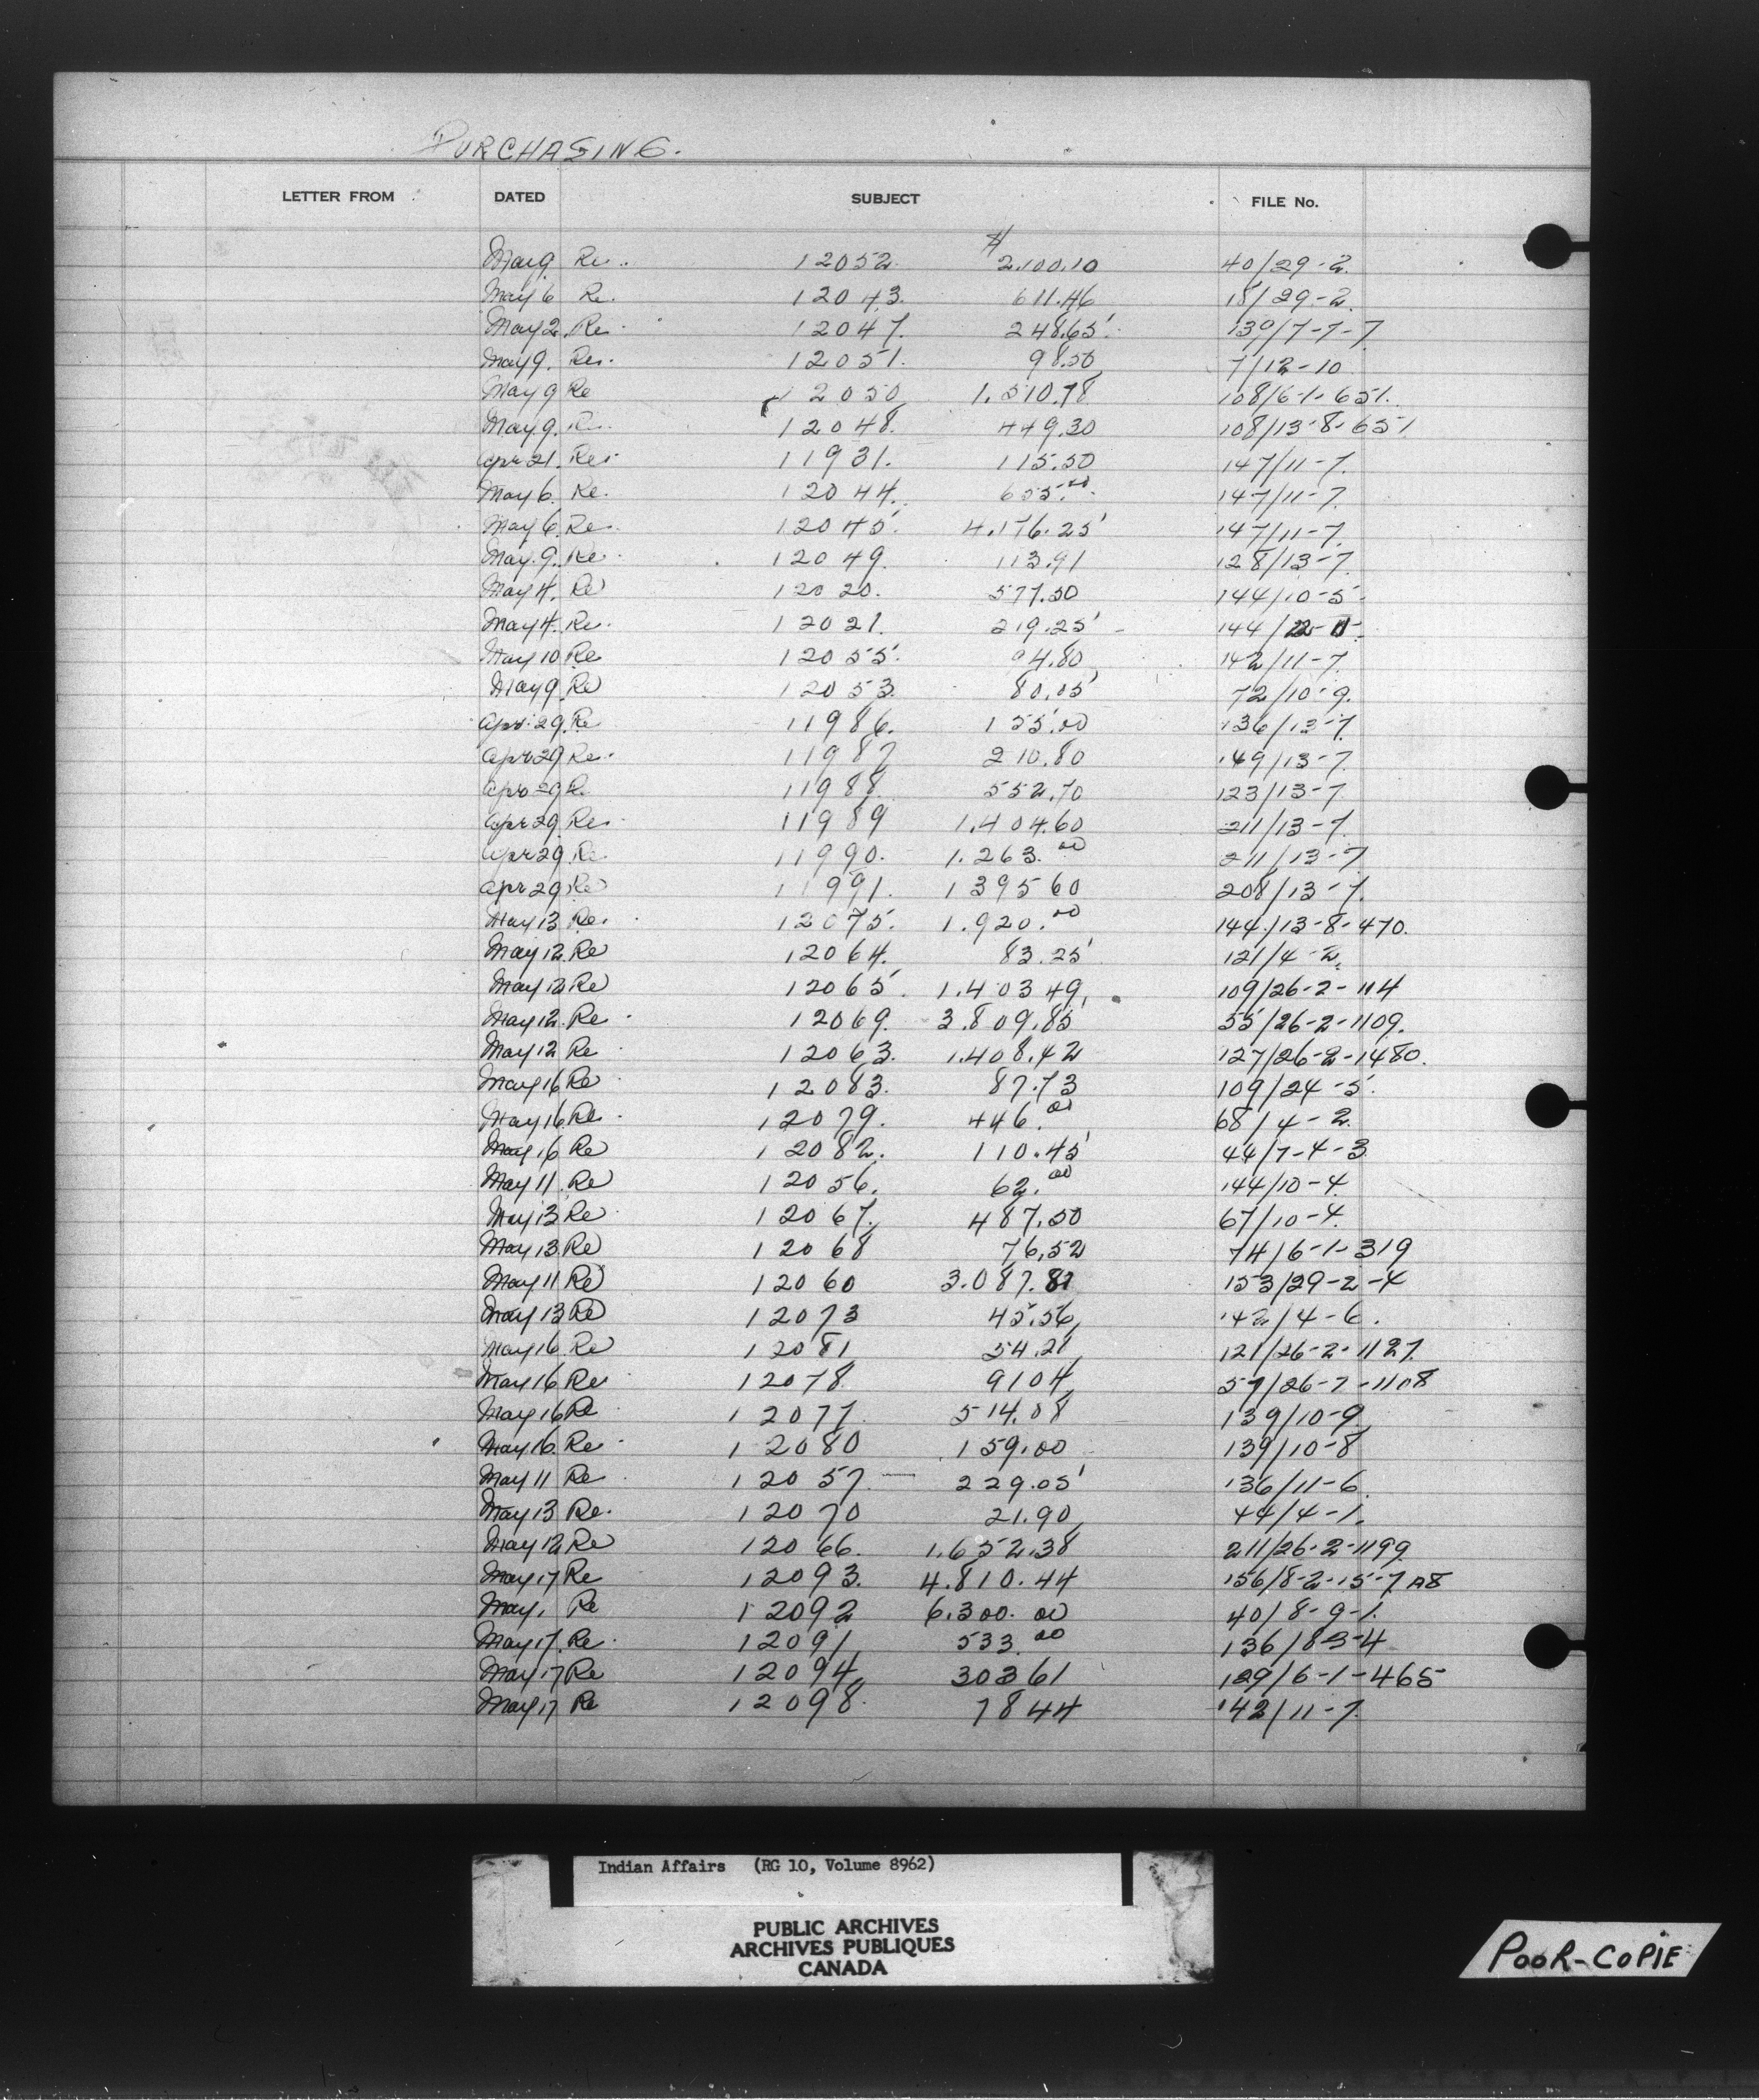 PURCHASING.
LETTER FROM DATED SUBJECT FILE No.
$
May 9. Re. 12052. 2,100.10 40/29-2.
May 6 Re. 12043. 611.46 18/29-2.
May 2. Re. 12047. 248.65 139/7-7-7
May 9. Re. 12051. 98.50 7/12-10
May 9 Re 12050 1.510.78 108/6-1-651.
May 9. Re. 12048. 449.30 108/13-8-651
Apr 21. Re. 11931. 115.50 147/11-7.
May 6. Re. 12044. 655.00 147/11-7.
May 6. Re. 12045. 4.176.25 147/11-7.
May 9. Re. 12049. 113.91 128/13-7.
May 4. Re 12020. 577.50 144/10-5-
May 4. Re. 12021. 219.25 144/
May 10 Re 12055. 94.80 142/11-7.
May 9. Re 12053. 80.05 72/10-9.
Apr. 29. Re 11986. 155.00 136/13-7
Apr 29 Re. 11987 210.80 149/13-7.
Apr 29 Re 11988. 552.70 123/13-7
Apr 29. Re. 11989 1.404.60 211/13-7.
Apr 29 Re 11990. 1.263.00 211/13-7
Apr 29 Re 11991. 1395 60 208/13-7.
May 13 Re. 12075. 1.920.00 144/13-8-470.
May 12. Re 12064. 83.25 121/4-2.
May 12 Re 12065. 1.403 49 109/26-2-114
May 12. Re 12069. 3.809.85 55/26-2-1109.
May 12 Re 12063. 1.408.42 127/26-2-1480.
May 16 Re 12083. 87.73 109/24-5.
May 16. Re. 12079. 446.00 68/4-2.
May 16 Re 12082. 110.45 44/7-4-3
May 11 Re 12056. 62.00 144/10-4.
May 13 Re 12067. 487.50 67/10-4.
May 13. Re 12068 76.52 74/6-1-319
May 11 Re 12060 3.087.87 153/29-2-4
May 13 Re 12073 45.56 142/4-6.
May 16 Re 12081 54.21 121/26-2-1127.
May 16 Re 12078. 91 04 57/26-7-1108
May 16 Re 12077. 514.08 139/10-9
May 16. Re 12080 159.00 139/10-8
May 11 Re 12057. 229.05 136/11-6.
May 13 Re. 12070 21.90 44/4-1.
May 12 Re 12066. 1.652.38 211/26-2-1199.
May 17 Re 12093. 4.810.44 156/8-2-15-7 A8
May, Re 12092 6.300.00 40/8-9-1.
May 17. Re. 12091 533 00 136/8-3-4
May 17 Re 12094 303 61 129/6-1-465
May 17 Re 12098. 78 44 142/11-7.
Indian Affairs (RG 10, Volume 8962)
PUBLIC ARCHIVES
ARCHIVES PUBLIQUES
CANADA
POOR-COPIE